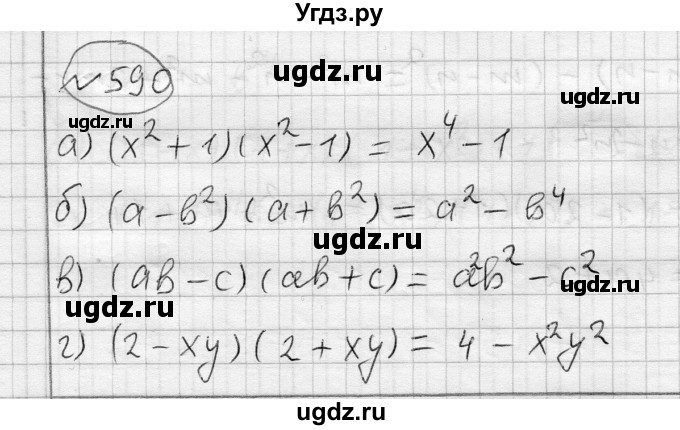 Угдз.ру
№590
ugdz.ru
ugdz.ru
ugdz.ru
а) (x²+1)(x²-1) = x⁴-1
ugdz.ru
б) (a-b²)(a+b²) = a²-b⁴
ugdz.ru
ugdz.ru
в) (ab-c)(ab+c) = a²b²-c²
ugdz.ru
ugdz.ru
г) (2-xy)(2+xy) = 4-x²y²
ugdz.ru
ugdz.ru